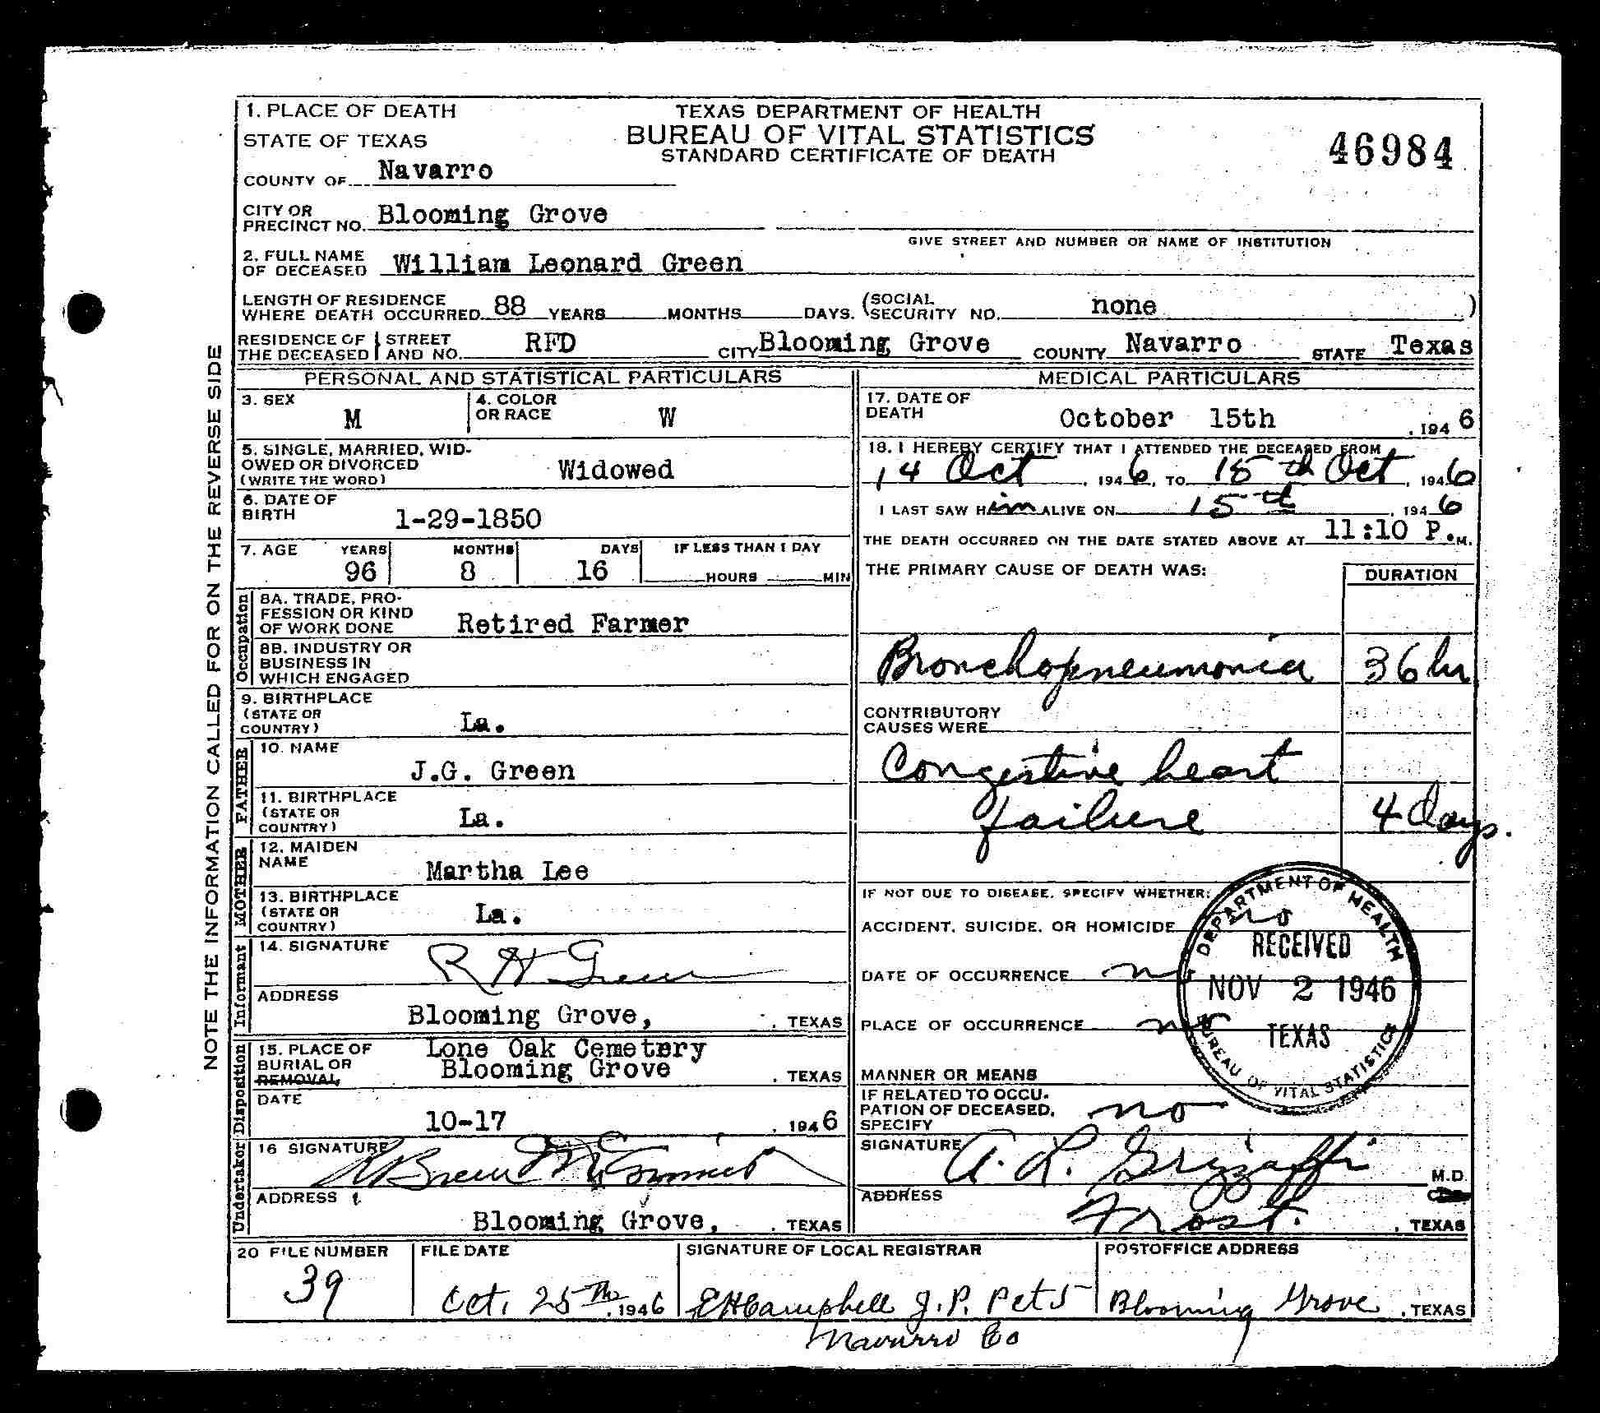 1. PLACE OF DEATH
TEXAS DEPARTMENT OF HEALTH
BUREAU OF VITAL STATISTICS
STANDARD CERTIFICATE OF DEATH
46984
STATE OF TEXAS
COUNTY OF Navarro
CITY OR PRECINCT NO. Blooming Grove
GIVE STREET AND NUMBER OR NAME OF INSTITUTION
2. FULL NAME OF DECEASED William Leonard Green
LENGTH OF RESIDENCE WHERE DEATH OCCURRED 88 YEARS MONTHS DAYS. (SOCIAL SECURITY NO. none )
RESIDENCE OF THE DECEASED STREET AND NO. RFD CITY Blooming Grove COUNTY Navarro STATE Texas
NOTE THE INFORMATION CALLED FOR ON THE REVERSE SIDE
PERSONAL AND STATISTICAL PARTICULARS
3. SEX M
4. COLOR OR RACE W
5. SINGLE, MARRIED, WIDOWED OR DIVORCED (WRITE THE WORD) Widowed
6. DATE OF BIRTH 1-29-1850
7. AGE YEARS MONTHS DAYS IF LESS THAN 1 DAY
96 8 16 HOURS MIN
Occupation
8A. TRADE, PROFESSION OR KIND OF WORK DONE Retired Farmer
8B. INDUSTRY OR BUSINESS IN WHICH ENGAGED
9. BIRTHPLACE (STATE OR COUNTRY) La.
FATHER
10. NAME J.G. Green
11. BIRTHPLACE (STATE OR COUNTRY) La.
MOTHER
12. MAIDEN NAME Martha Lee
13. BIRTHPLACE (STATE OR COUNTRY) La.
Informant
14. SIGNATURE R H Green
ADDRESS Blooming Grove, , TEXAS
Disposition
15. PLACE OF BURIAL OR REMOVAL, Lone Oak Cemetery
Blooming Grove , TEXAS
DATE 10-17 , 1946
Undertaker
16 SIGNATURE
ADDRESS Blooming Grove, , TEXAS
MEDICAL PARTICULARS
17. DATE OF DEATH October 15th , 1946
18. I HEREBY CERTIFY THAT I ATTENDED THE DECEASED FROM
14 Oct , 1946, TO 15th Oct , 1946
I LAST SAW Him ALIVE ON 15th , 1946
THE DEATH OCCURRED ON THE DATE STATED ABOVE AT 11:10 P.M.
THE PRIMARY CAUSE OF DEATH WAS: DURATION
Bronchopneumonia 36 hr
CONTRIBUTORY CAUSES WERE
Congestive heart
failure 4 days.
IF NOT DUE TO DISEASE, SPECIFY WHETHER:
ACCIDENT, SUICIDE, OR HOMICIDE no
DATE OF OCCURRENCE no
PLACE OF OCCURRENCE no
MANNER OR MEANS
IF RELATED TO OCCUPATION OF DECEASED, SPECIFY no
SIGNATURE A. L. Grizzaffi M.D.
ADDRESS Frost. , TEXAS
DEPARTMENT OF HEALTH
RECEIVED
NOV 2 1946
TEXAS
BUREAU OF VITAL STATISTICS
20 FILE NUMBER 39
FILE DATE Oct. 25th, 1946
SIGNATURE OF LOCAL REGISTRAR E H Campbell J.P. Pct 5
Navarro Co
POSTOFFICE ADDRESS Blooming Grove , TEXAS